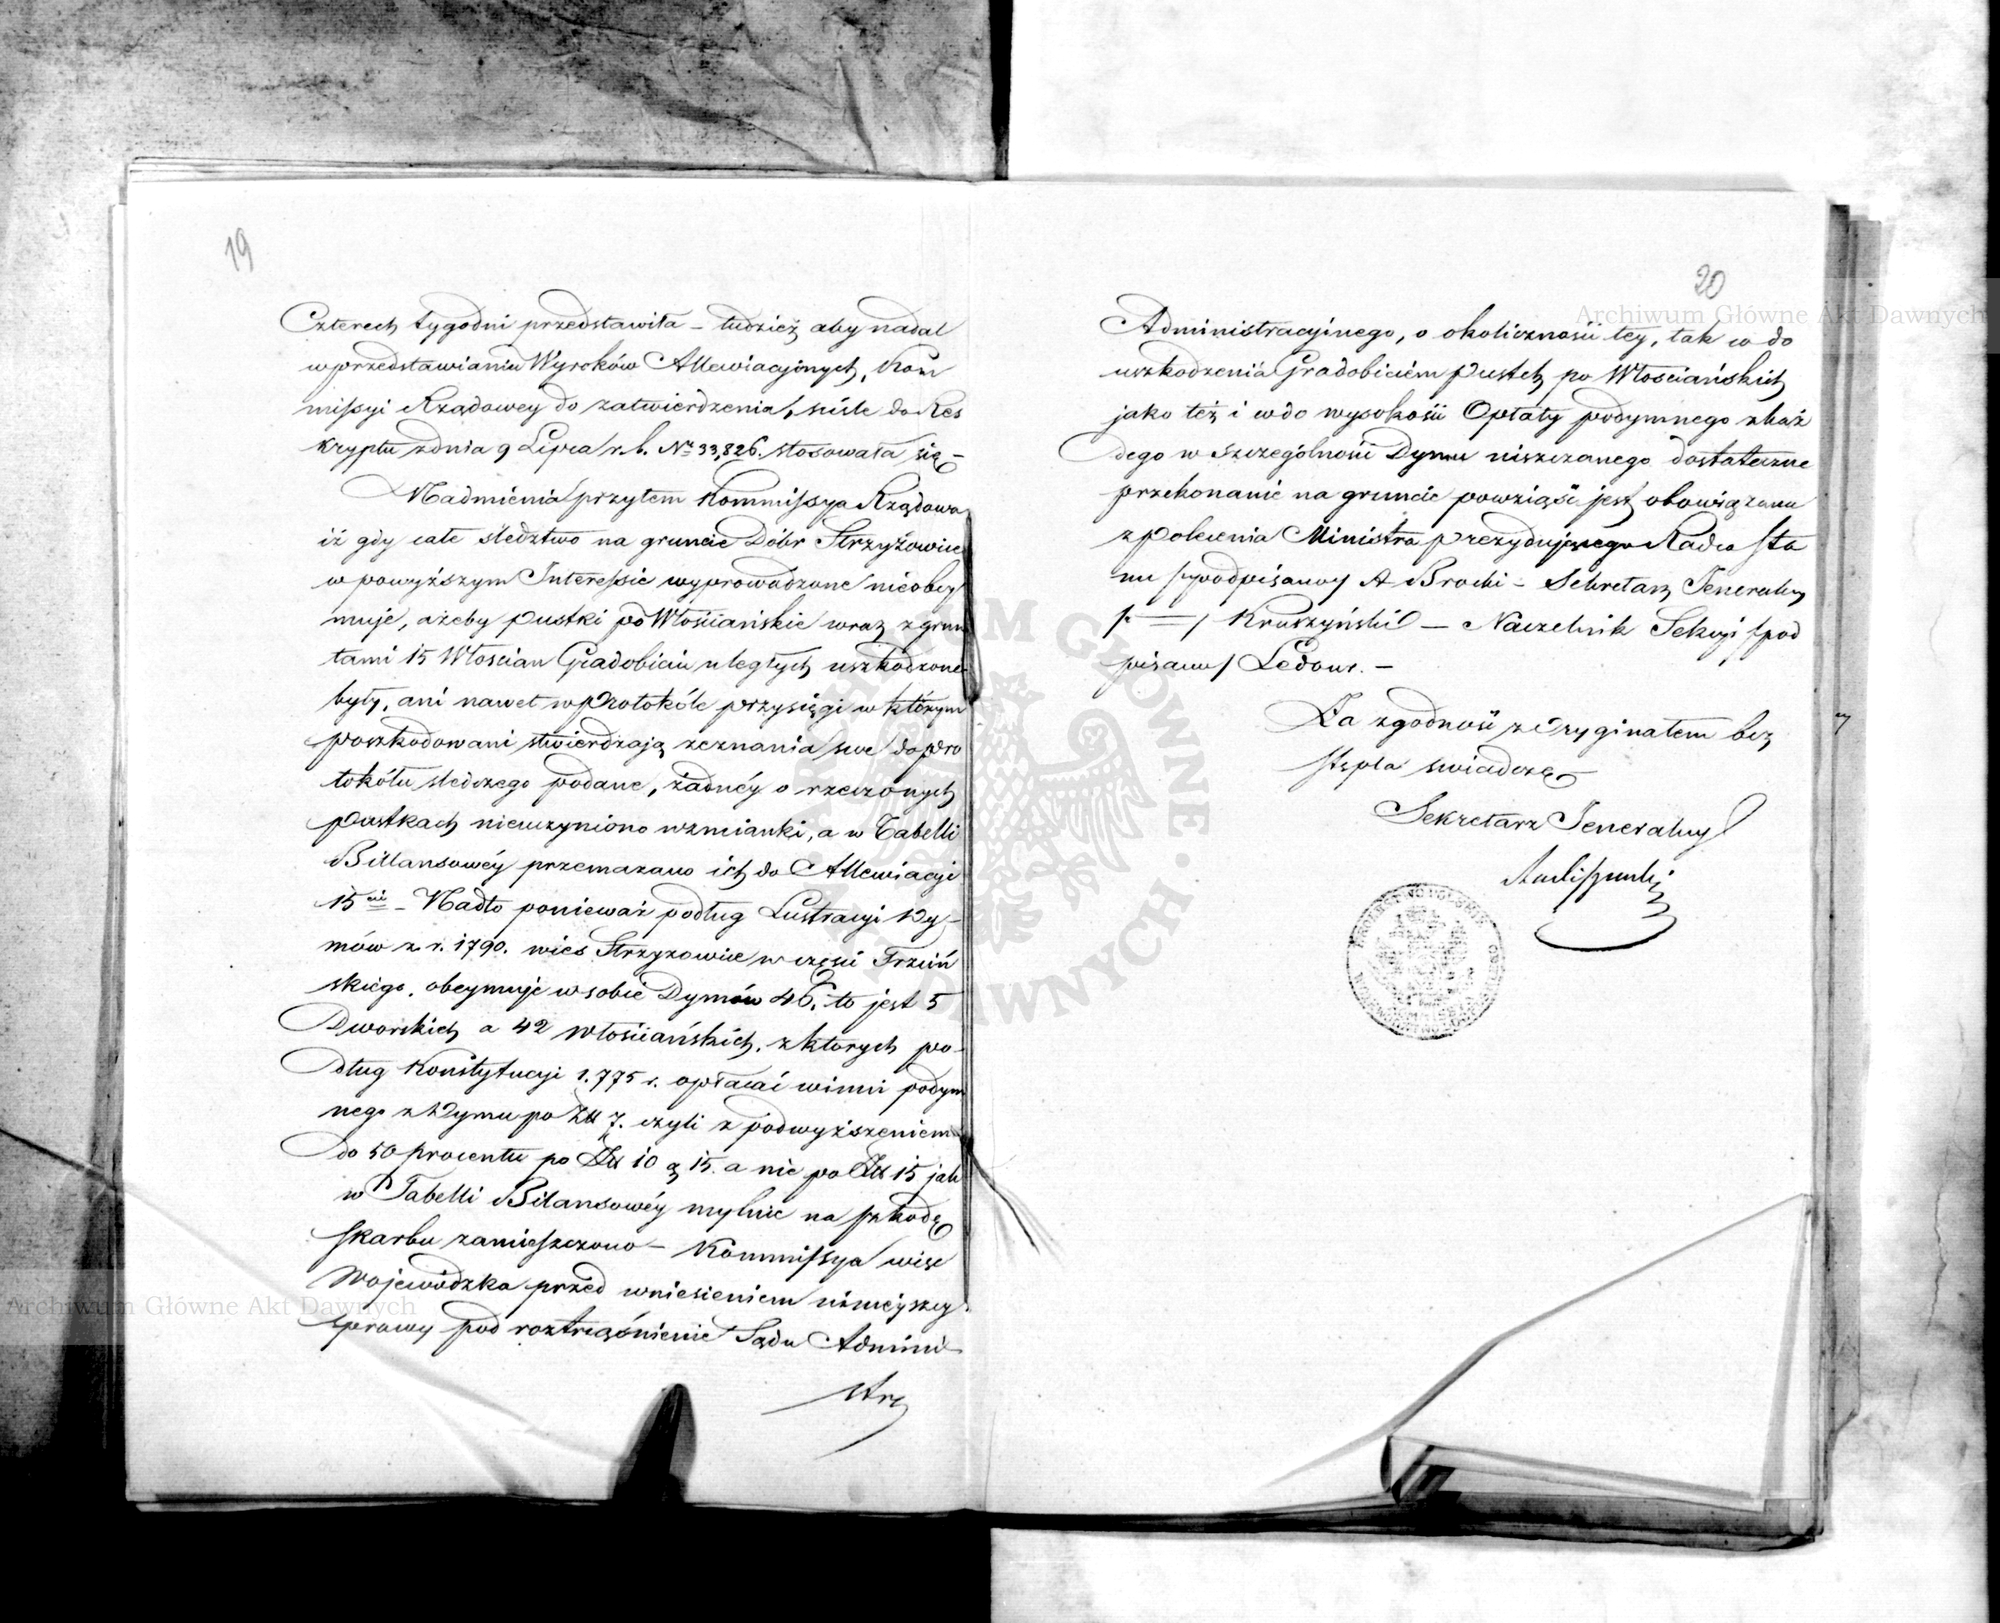 19
Czterech tygodni przedstawiła – tudzież aby nadal
w przedstawianiu Wyroków Allewiacyjnych, Kom
missyi Rządowey do zatwierdzenia, ściśle do Res
kryptu z dnia 9 Lipca r. b. No 33,826. stosowała się –
Nadmienia przytem Kommissya Rządowa
iż gdy całe śledztwo na gruncie Dóbr Strzyżowice
w powyższym Interessie wyprowadzone nieobey
muje, ażeby pustki po Włościańskie wraz z grun
tami 15 Włościan Gradobiciu uległych uszkodzone
były, ani nawet w Protokóle przysięgi w którym
poszkodowani stwierdzają zeznania swe do pro
tokółu śledczego podane, żadnéy o rzeczonych
pustkach nieuczyniono wzmianki, a w Tabelli
Billansowéy przemazano ich do Allewiacyi
15cie – Nadto ponieważ podług Lustracyi Dy–
mów z r. 1790. wieś Strzyzowice w części Trzciń
skiego, obeymuje w sobie Dymów 46, to jest 5
Dworskich a 42 Włościańskich, z ktorych po–
dług Konstytucyi 1.775 r. opłacać winni podym
nego z Dymu po Zł 7. czyli z podwyższeniem
do 50 procentu po Zł 10 g 15. a nie po Zł 15 jak
w Tabelli Bilansowéy mylnie na szkodę
skarbu zamieszczono – Kommissya więc
Wojewódzka przed wniesieniem ninieyszey
sprawy pod roztrząśnienie Sądu Admini–
stra
20
Administracyinego, o okoliczności tey, tak co do
uszkodzenia Gradobiciem pustek po Włosciańskich
jako też i co do wysokości Opłaty podymnego z każ
dego w szczególności Dymu niszczanego dostateczne
przekonanie na gruncie powziąść jest obowiązana
z polecenia Ministra prezydującego Radca Sta
nu /podpisano/ A Brocki – Sekretarz Jeneralny
/ = / Kruszyński – Naczelnik Sekcyi /pod
pisano/ Ledoux. –
Za zgodność z Oryginałem bez
stępla swiadczę
Sekretarz Jeneralny
Archiwum Główne Akt Dawnych
Archiwum Główne Akt Dawnych